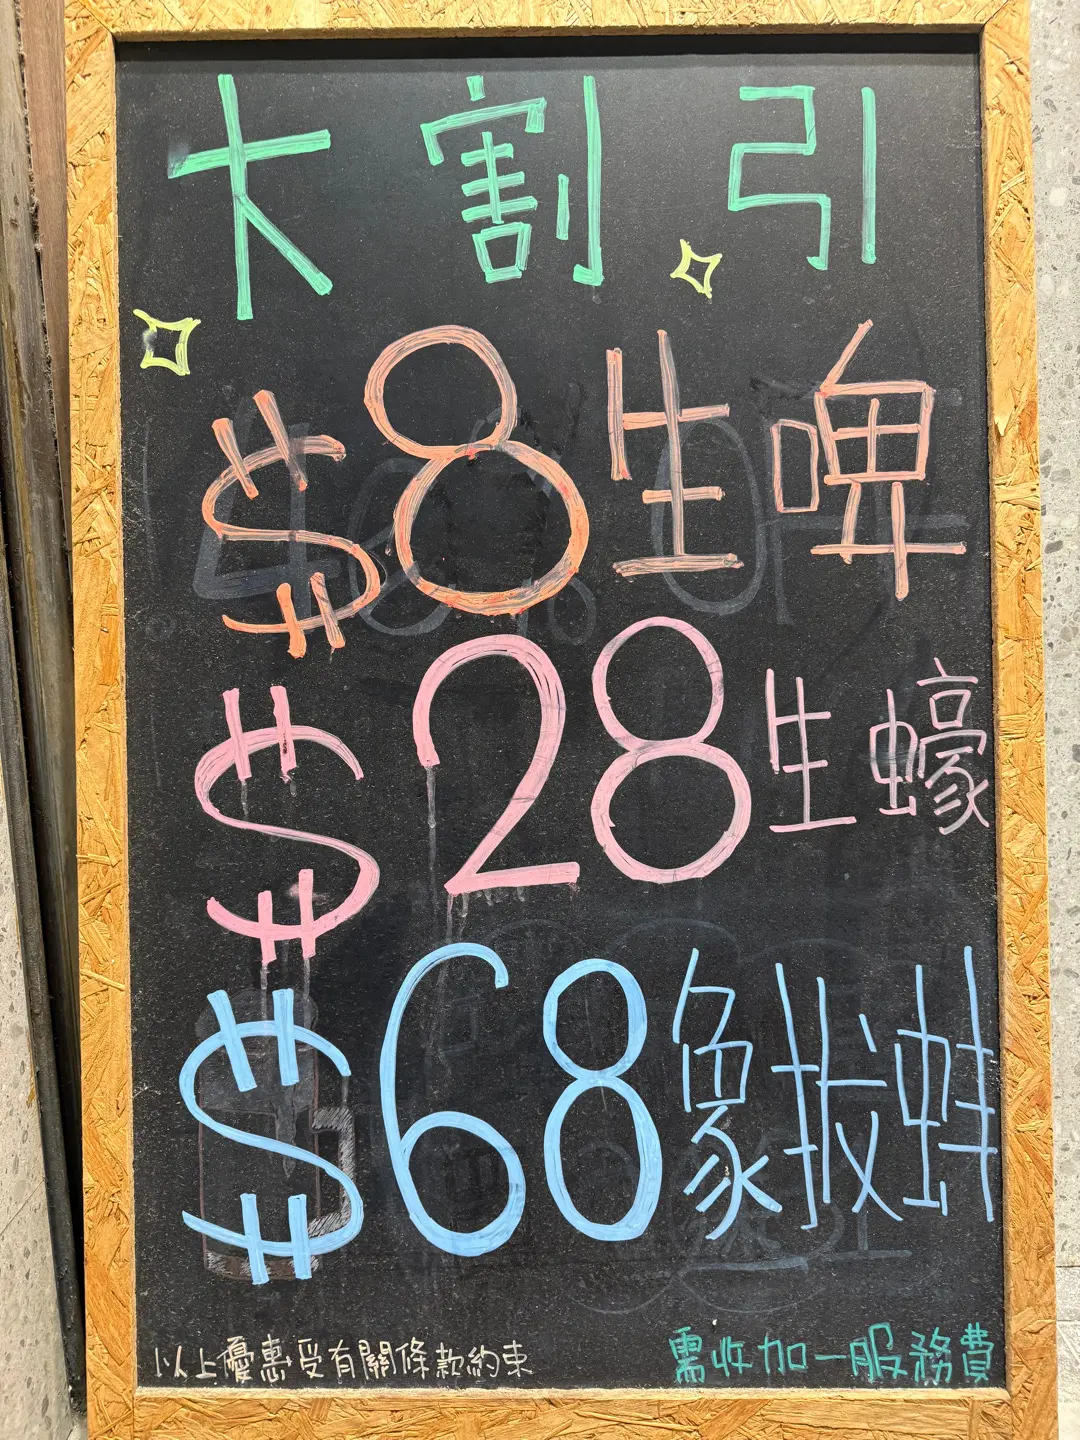 大割引
$8生啤
$28生蠔
$68象拔蚌
以上優惠受有關條款約束
需收加一服務費